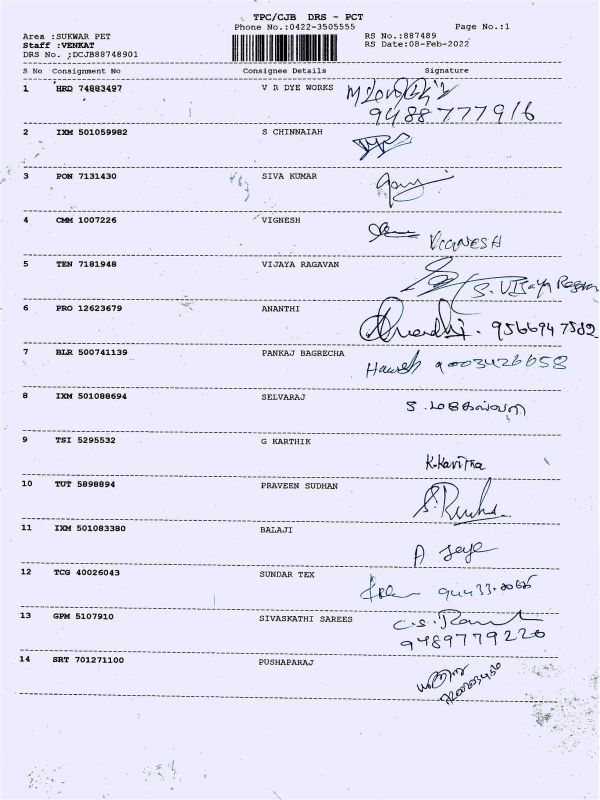 TPC/CJB DRS - PCT
Phone No.:0422-3505555 Page No.:1
Area :SUKWAR PET RS No.:887489
Staff :VENKAT RS Date:08-Feb-2022
DRS No. :DCJB88748901
S No Consignment No Consignee Details Signature
1 HRD 74883497 V R DYE WORKS
9488777916
2 IXM 501059982 S CHINNAIAH
3 PON 7131430 SIVA KUMAR
4 CMM 1007226 VIGNESH
VIGNESH
5 TEN 7181948 VIJAYA RAGAVAN
S. Vijaya Ragavan
6 PRO 12623679 ANANTHI
Ananthi. 9566947582
7 BLR 500741139 PANKAJ BAGRECHA
9003426658
8 IXM 501088694 SELVARAJ
9 TSI 5295532 G KARTHIK
K.Kavitha
10 TUT 5898894 PRAVEEN SUDHAN
11 IXM 501083380 BALAJI
A Jaya
12 TCG 40026043 SUNDAR TEX
13 GPM 5107910 SIVASKATHI SAREES
9489779220
14 SRT 701271100 PUSHAPARAJ